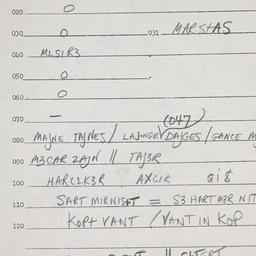 020 O
030 O 031 MARSTAS
040 MLSLR3
050 O
060 O
070 – (047)
080 MAJNE TAJNES / LAJNGE DAJGES / GANCE M
090 M3CAR ZAJN || TAJ3R
100 HARC1K3R AXCIR QI$
110 SART MIRNIST = S3 HART M3R NIT
120 KOPT VANT / VANT IN KOP